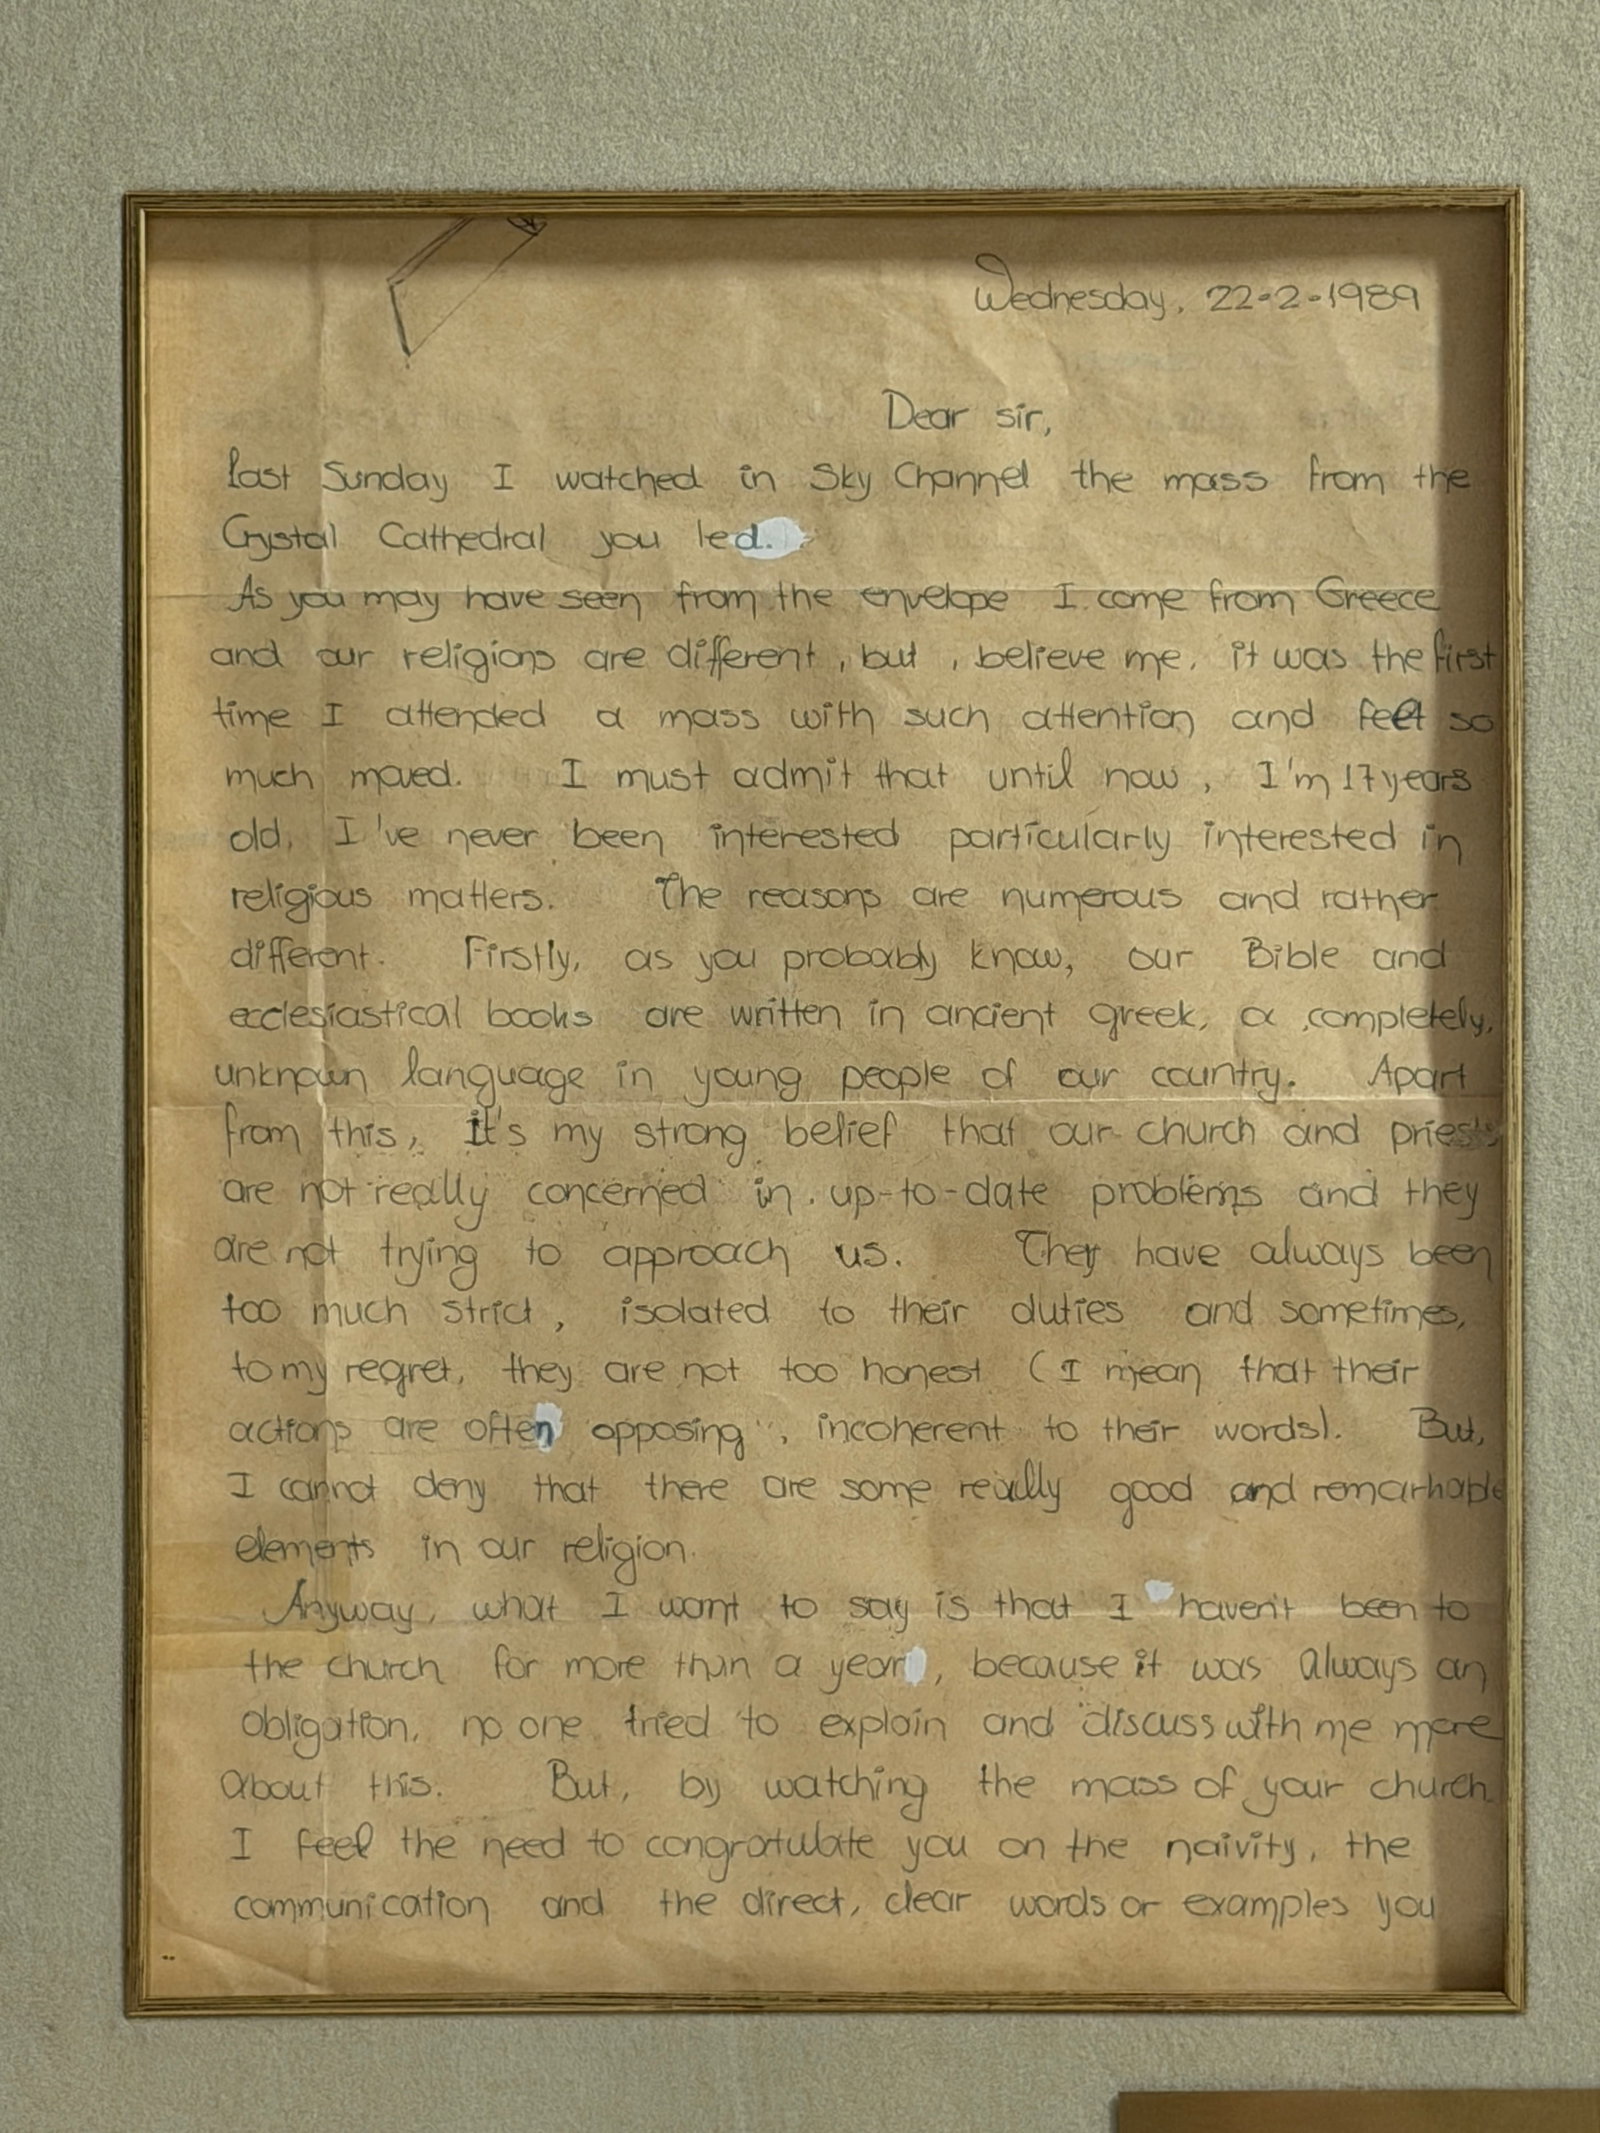 Wednesday, 22-2-1989
Dear sir,
last Sunday I watched in Sky Channel the mass from the
Crystal Cathedral you led.
As you may have seen from the envelope I come from Greece
and our religions are different, but, believe me, it was the first
time I attended a mass with such attention and feet so
much moved. I must admit that until now, I'm 17 years
old, I've never been interested particularly interested in
religious matters. The reasons are numerous and rather
different. Firstly, as you probably know, our Bible and
ecclesiastical books are written in ancient greek, a completely,
unknown language in young people of our country. Apart
from this, It's my strong belief that our church and priests
are not really concerned in up-to-date problems and they
are not trying to approach us. They have always been
too much strict, isolated to their duties and sometimes,
to my regret, they are not too honest (I mean that their
actions are often opposing, incoherent to their words). But,
I cannot deny that there are some really good and remarkable
elements in our religion.
Anyway, what I want to say is that I haven't been to
the church for more than a year, because it was always an
obligation, no one tried to explain and discuss with me more
about this. But, by watching the mass of your church
I feel the need to congratulate you on the naivity, the
communication and the direct, clear words or examples you